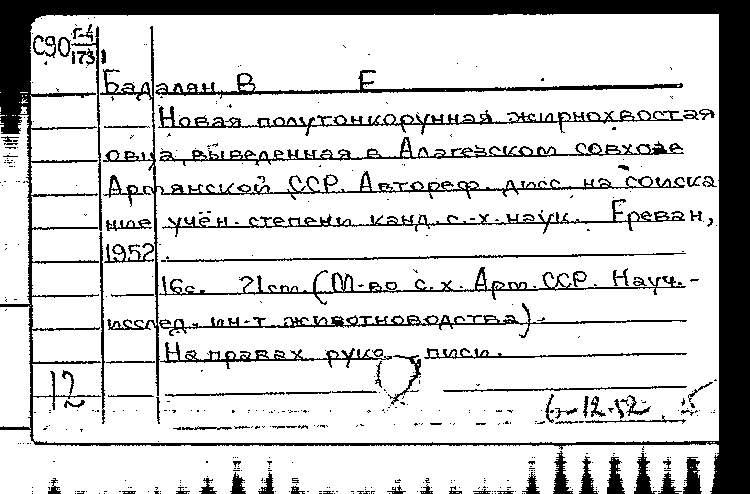 С90 Г-4
173
Бадалян, В Е
Новая полутонкорунная жирнохвостая
овца, выведенная в Алагезском совхозе
Армянской ССР. Автореф. дисс. на соиска
ние учён. степени канд. с.-х. наук. Ереван,
1952.
16с. 21см. (М-во с.х. Арм. ССР. Науч.-
исслед. ин-т животноводства).
На правах рукописи.
12
6-12-52.